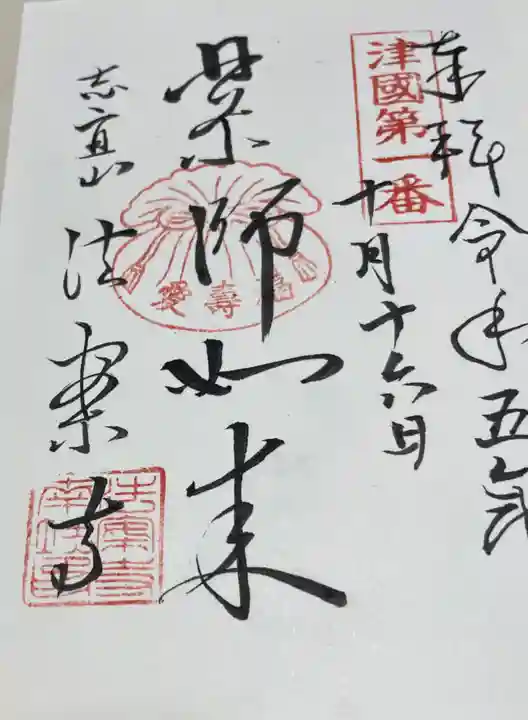 奉拝 令和五年
十月十六日
津國第一番
薬師如来
福壽愛
志宜山 法案寺